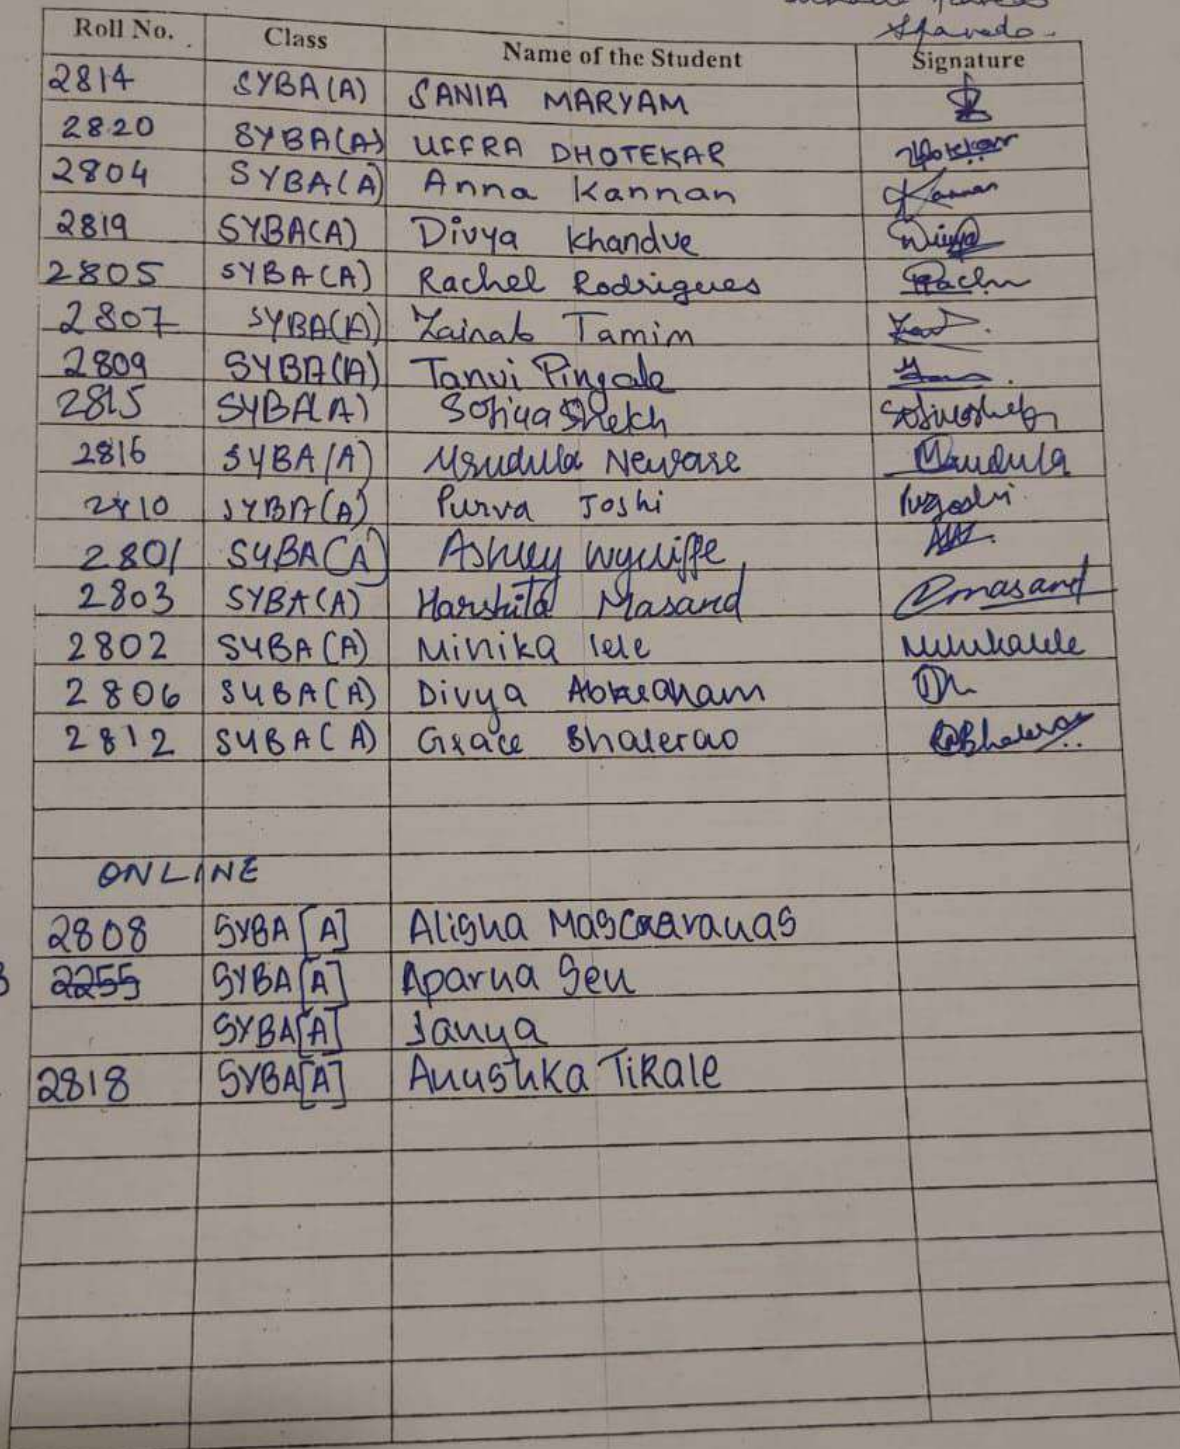 Roll No. Class Name of the Student Signature
2814 SYBA(A) SANIA MARYAM
2820 SYBA(A) UFFRA DHOTEKAR Dhotekar
2804 SYBA(A) Anna Kannan Kannan
2819 SYBA(A) Divya Khandve Divya
2805 SYBA(A) Rachel Rodrigues
2807 SYBA(A) Zainab Tamim
2809 SYBA(A) Tanvi Pingale
2815 SYBA(A) Sofiya Shekh
2816 SYBA(A) Mrudula Newase Mrudula
2810 SYBA(A) Purva Joshi
2801 SYBA(A) Ashley Wycliffe
2803 SYBA(A) Harshita Masand masand
2802 SYBA(A) Minika lele Minikalele
2806 SYBA(A) Divya Abraham
2812 SYBA(A) Grace Bhalerao GBhalerao
ONLINE
2808 SYBA[A] Alisha Mascaravanas
2255 SYBA[A] Aparna Sen
SYBA[A] Sanya
2818 SYBA[A] Anushka TiRale